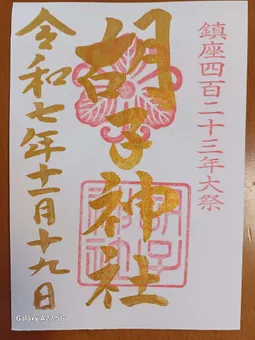 鎮座四百二十三年大祭
胡子神社
令和七年十一月十九日
Galaxy A22 5G